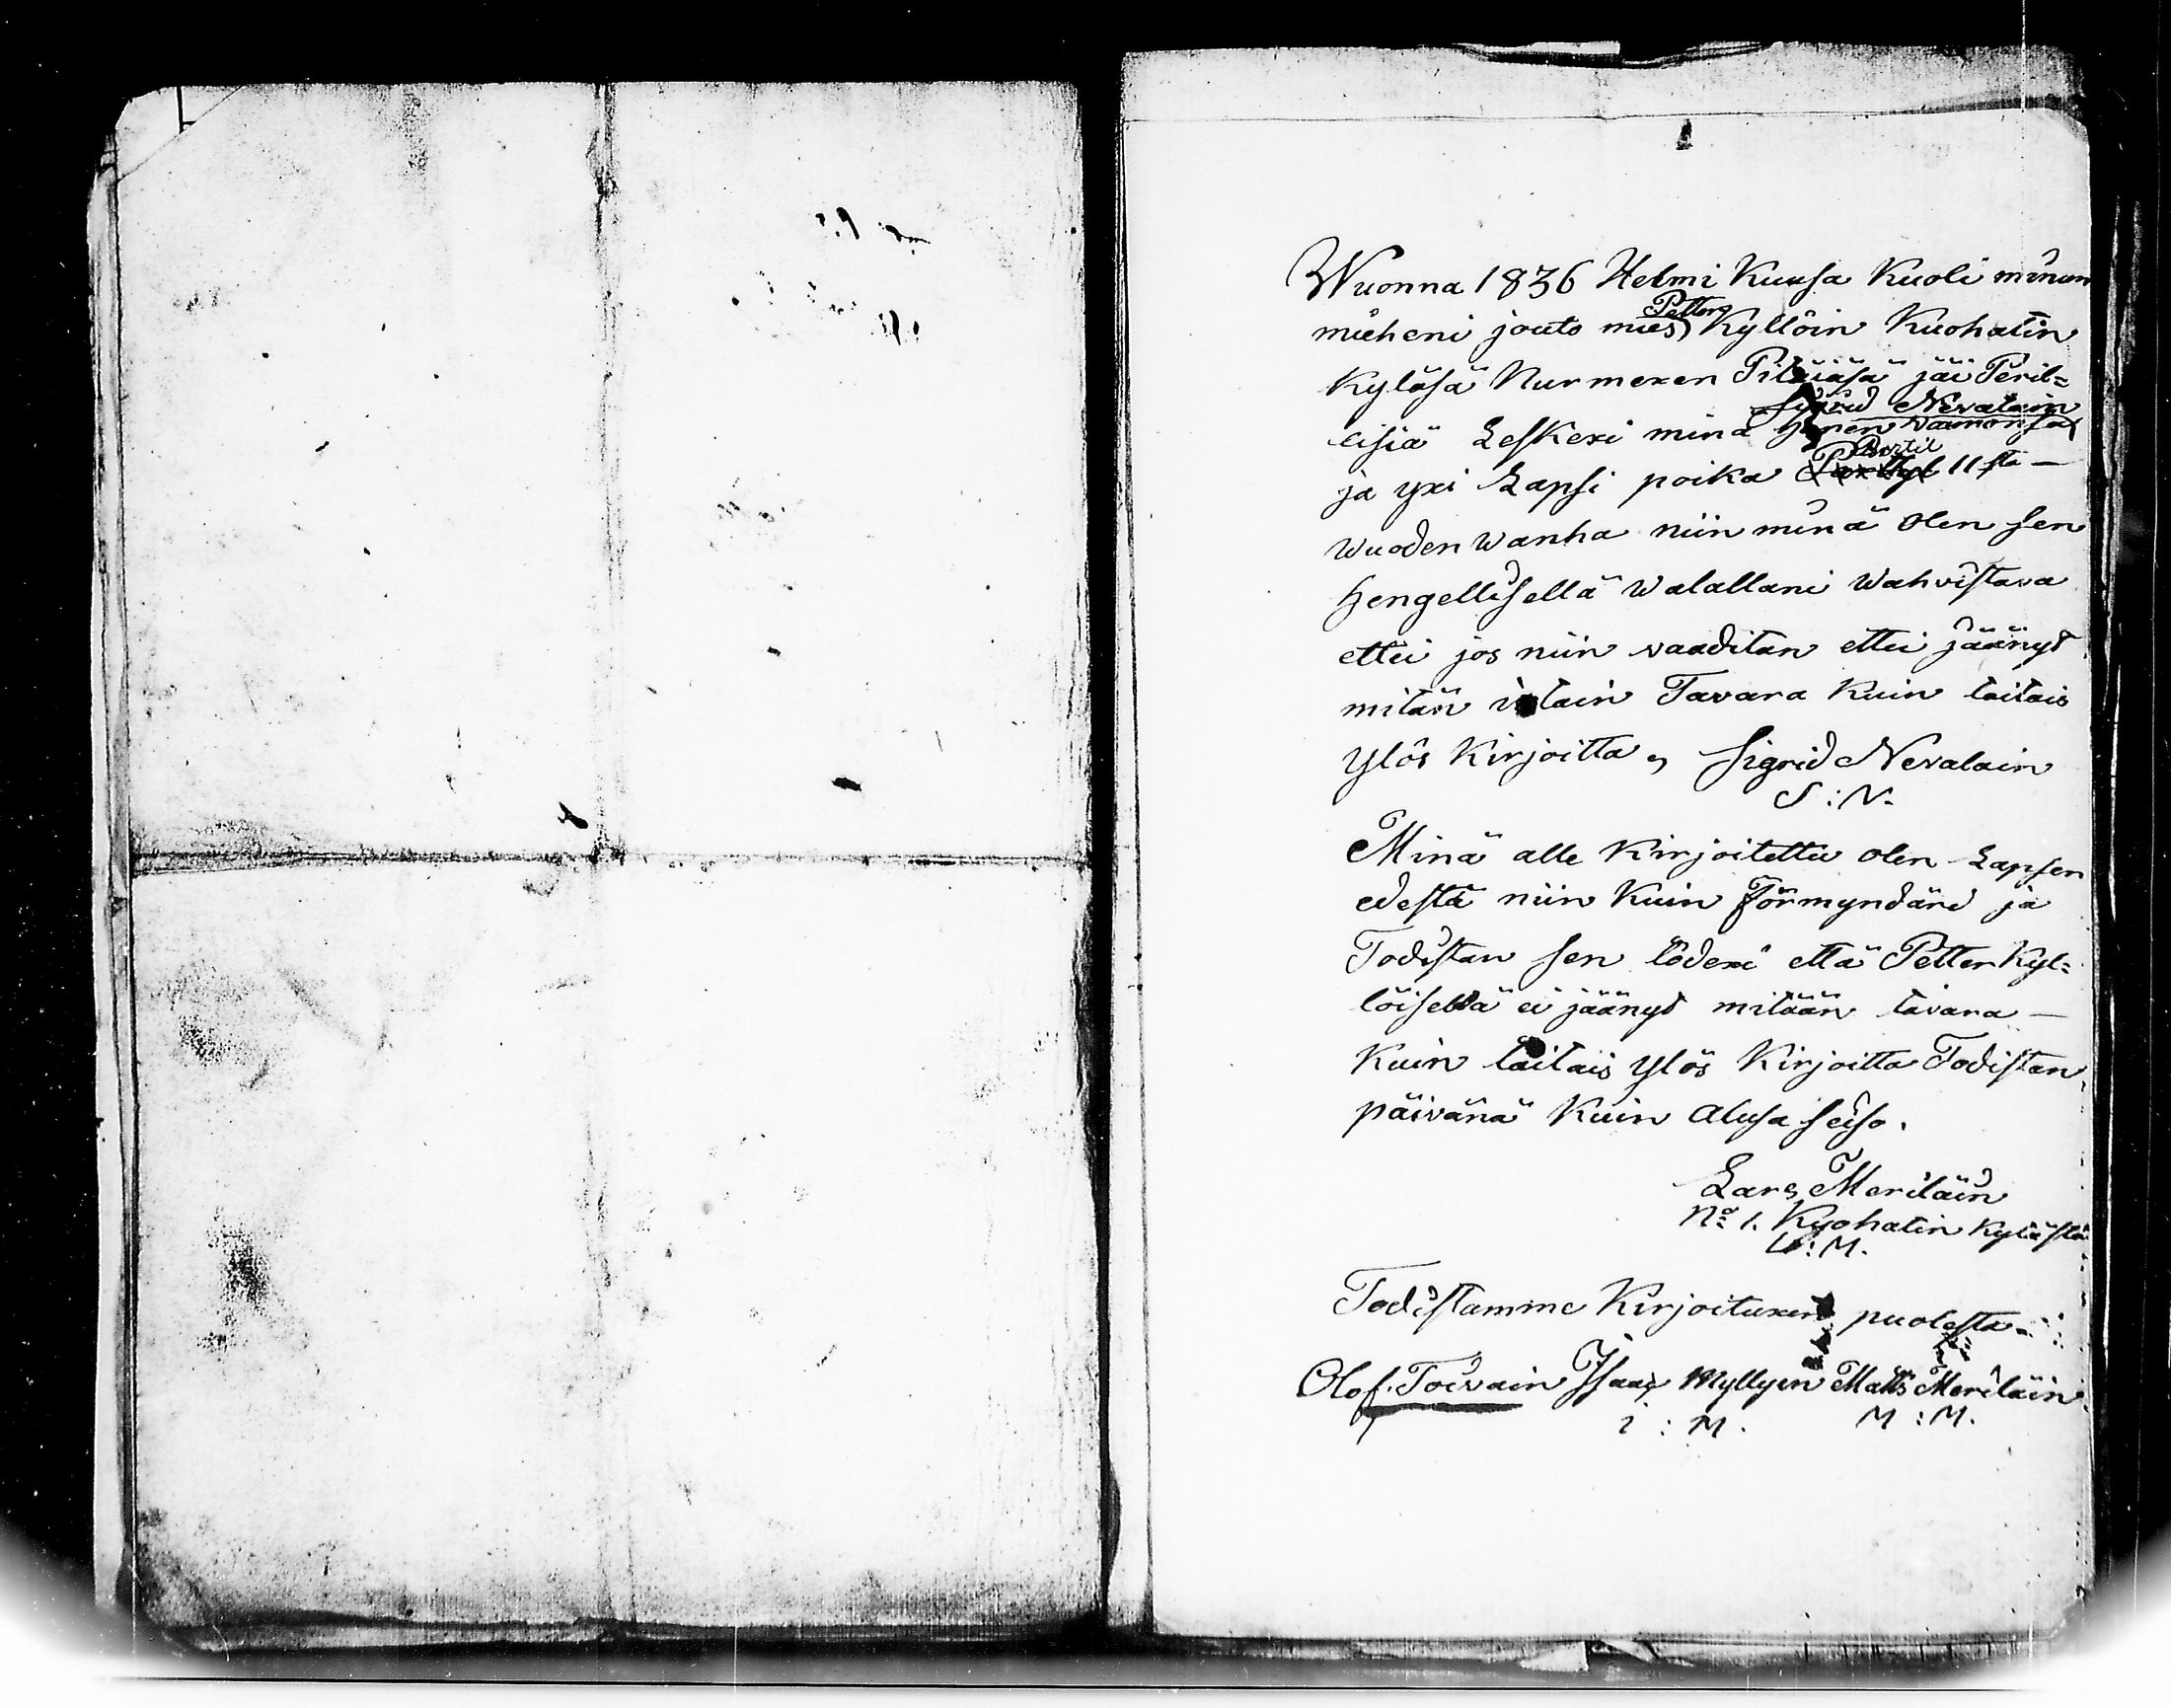 Wuonna 1836 Helmi Kuusa Kuoli minun
Petter
mieheni jouto mies Kyllöin Kuohatin
Kyläsä Nurmexen Pitäjäsä jäi Peril=
Sigrid Nevalain
eisiä Leskexi minä hänen vaimonsa
Bertil
ja yxi Lapsi poika 11sta —
wuoden wanha niin minä olen sen
hengellisellä walallani wahvistava
ettei jos niin vaaditan ettei jäänyt
mitän Tavara Kuin taitais
Ylös Kirjoitta, Sigrid Nevalain
S : N.
Minä alle Kirjoitettu olen Lapsen
edestä niin Kuin Förmyndäri ja
Todistan sen todexi että Petter Kyl=
löiseldä ei jäänyt mitään tavara —
Kuin taitais Ylös Kirjoitta Todistan
päivänä Kuin alusa seiso.
Lars Meriläin
No 1. Kyohatin Kylästä
L : M.
Todistamme Kirjoituxen puolesta
Olof Toivain Isaac Myllyin Matts Meriläin
i : M. M : M.